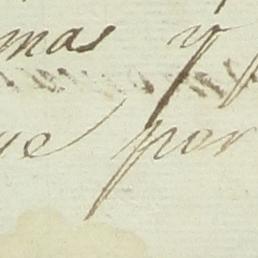 mas y
ue por